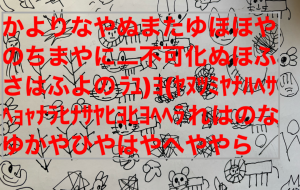 かよりなやぬまたゆほほや
のちまやに二不可化ぬほふ
さはふよのﾗユ)ﾖ(ﾋﾔﾇｻﾐﾔﾅﾙﾍｻ
ﾍﾖﾔﾅﾗﾋﾅｻﾔﾋﾖﾋﾖﾍﾍﾗれはのな
ゆかやひやはやへややら